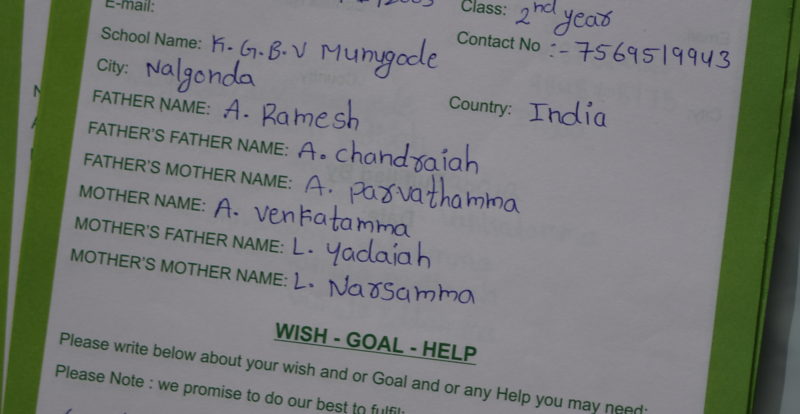 E-mail:
Class: 2nd year
School Name: K.G.B.V Munugode
Contact No :- 7569519943
City: Nalgonda
Country: India
FATHER NAME: A. Ramesh
FATHER'S FATHER NAME: A. chandraiah
FATHER'S MOTHER NAME: A. parvathamma
MOTHER NAME: A. venkatamma
MOTHER'S FATHER NAME: L. yadaiah
MOTHER'S MOTHER NAME: L. Narsamma
WISH - GOAL - HELP
Please write below about your wish and or Goal and or any Help you may need:
Please Note : we promise to do our best to fulfil